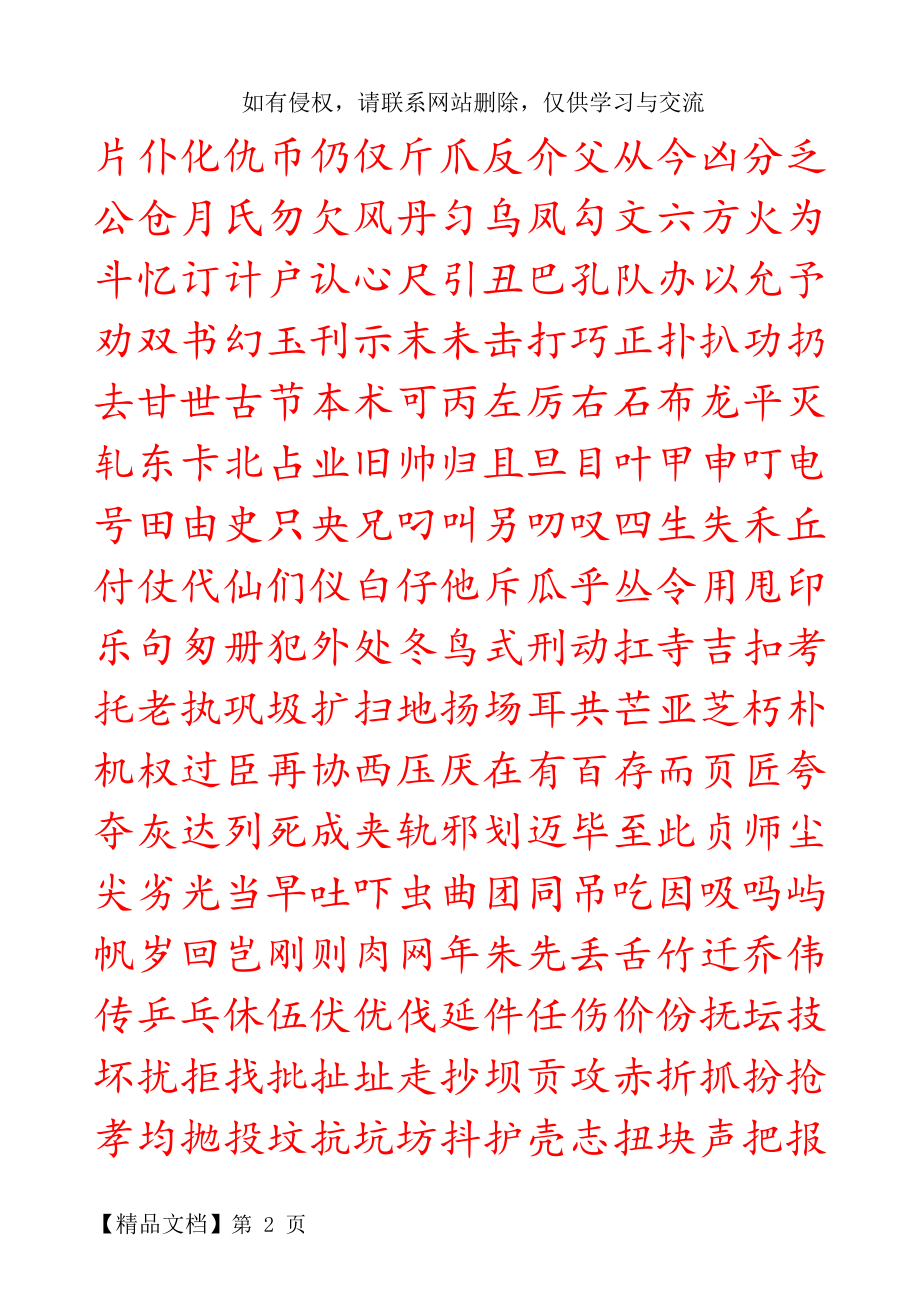 如有侵权，请联系网站删除，仅供学习与交流
片仆化仇币仍仅斤爪反介父从今凶分乏
公仓月氏勿欠风丹匀乌凤勾文六方火为
斗忆订计户认心尺引丑巴孔队办以允予
劝双书幻玉刊示末未击打巧正扑扒功扔
去甘世古节本术可丙左厉右石布龙平灭
轧东卡北占业旧帅归且旦目叶甲申叮电
号田由史只央兄叼叫另叨叹四生失禾丘
付仗代仙们仪白仔他斥瓜乎丛令用甩印
乐句匆册犯外处冬鸟式刑动扛寺吉扣考
托老执巩圾扩扫地扬场耳共芒亚芝朽朴
机权过臣再协西压厌在有百存而页匠夸
夺灰达列死成夹轨邪划迈毕至此贞师尘
尖劣光当早吐吓虫曲团同吊吃因吸吗屿
帆岁回岂刚则肉网年朱先丢舌竹迁乔伟
传乒乓休伍伏优伐延件任伤价份抚坛技
坏扰拒找批扯址走抄坝贡攻赤折抓扮抢
孝均抛投坟抗坑坊抖护壳志扭块声把报
【精品文档】第 2 页